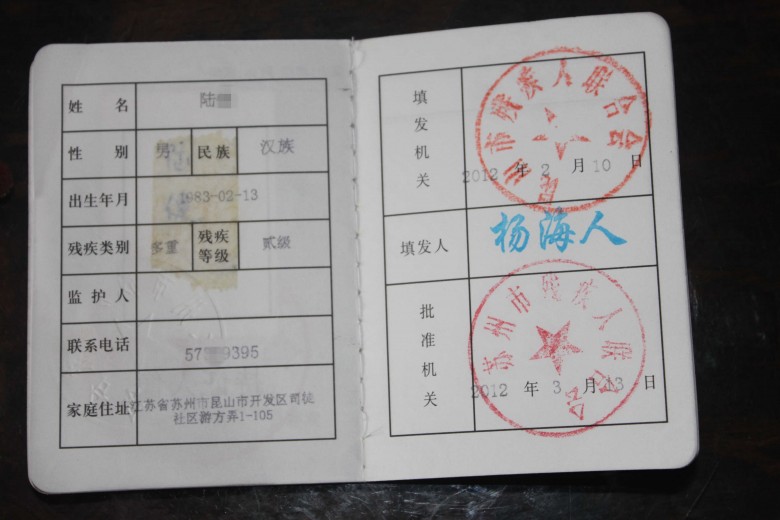 姓 名 陆
性 别 男 民族 汉族
出生年月 1983-02-13
残疾类别 多重 残疾等级 贰级
监 护 人
联系电话 57 9395
家庭住址 江苏省苏州市昆山市开发区司徒
社区游方弄1-105
填发机关
市残疾人联合会
2012 年 2 月 10 日
填发人 杨海人
批准机关
苏州市残疾人联合会
2012 年 3 月 13 日